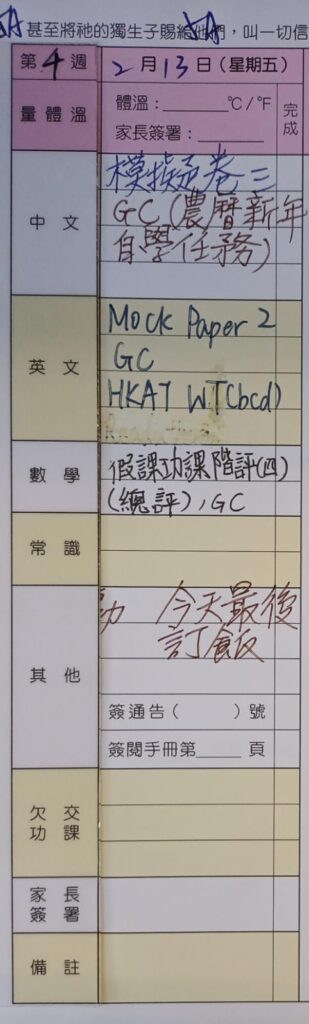 甚至將祂的獨生子賜給他們，叫一切信
第4週 2月13日（星期五）
量體溫 體溫：______℃/℉ 完成
家長簽署：______
中文 模擬卷三
GC（農曆新年
自學任務）
英文 Mock Paper 2
GC
HKAT WT(bcd)
數學 假課功課階評(四)
(總評), GC
常識
其他 功 今天最後
訂飯
簽通告（ ）號
簽閱手冊第____頁
欠交功課
家長簽署
備註